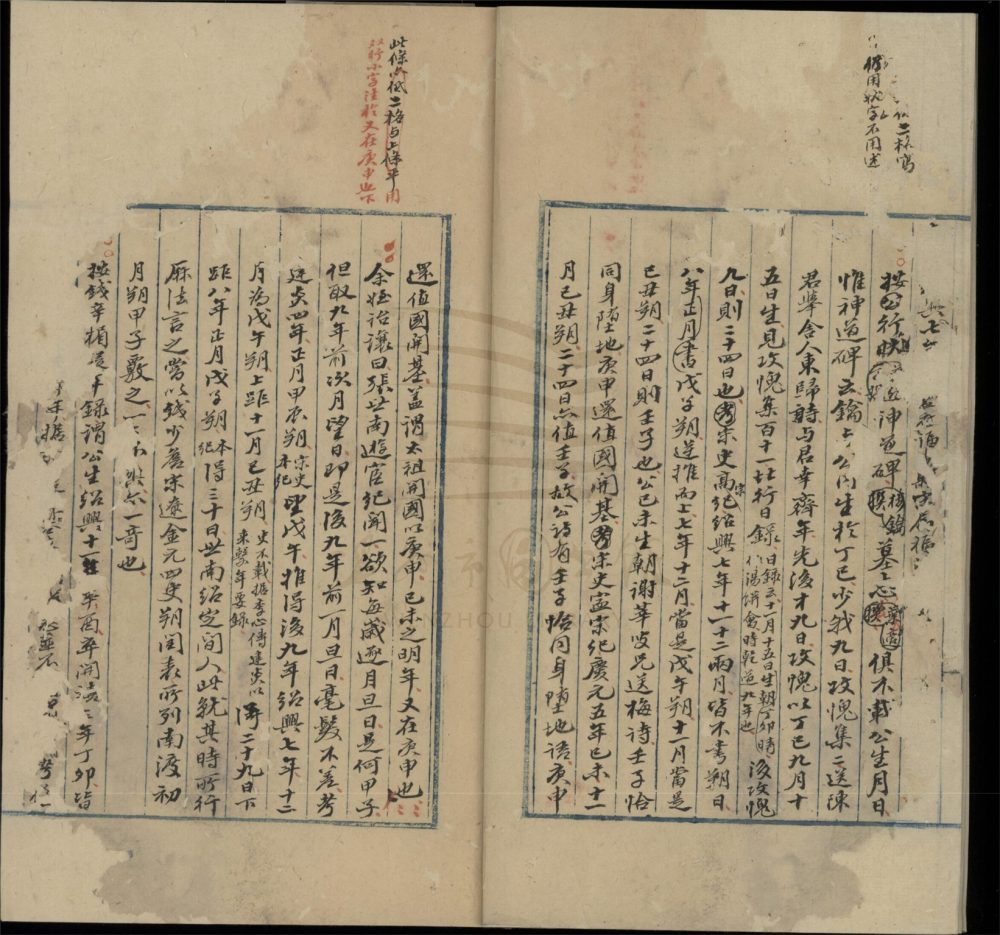 仍用狀字不用述
按公行狀
神道碑樓鑰撰墓志葉適撰俱不載公生月日
惟神道碑云鑰與公同生於丁巳少我九日攻愧集二送陳
君舉舍人東歸詩与君幸齊年先後才九日攻愧以丁巳九月十
五日生見攻愧集百十一北行日錄日錄云十月十五日生朝丁卯晴
後攻愧
九日則二十四日也考宋史高宗紀紹興七年十一十二兩月皆不書朔日
八年正月書戊子朔逆推而上七年十二月當是戊午朔十一月當是
己丑朔二十四日則壬子也公己未生朝謝華叟兄送梅詩壬子恰
同身墮地庚申還值國開基考宋史寧宗紀慶元五年己未十一
月己丑朔二十四日亦值壬子故公詩有壬子恰同身墮地語庚申
此條亦低二格与上條平用
双行小字注於又在庚申也下
還值國開基蓋謂太祖開國以庚申己未之明年又在庚申也
余姪詒讓曰張世南遊宦紀聞一欲知每歲逐月旦日是何甲子
但取九年前次月望日即是後九年前一月旦日毫髮不差考
建炎四年正月甲辰朔宋史本紀望戊午推得後九年紹興七年十二
月為戊午朔上距十一月己丑朔史不載據李心傳建炎以來繫年要錄得二十九日下
距八年正月戊子朔本紀得三十日世南紹定間人此就其時所行
厤法言之嘗以錢少詹宋遼金元四史朔閏表所列南渡初
月朔甲子覈之一一不爽亦一奇也
按錢辛楣疑年錄謂公生紹興十一年辛酉卒開禧三年丁卯皆